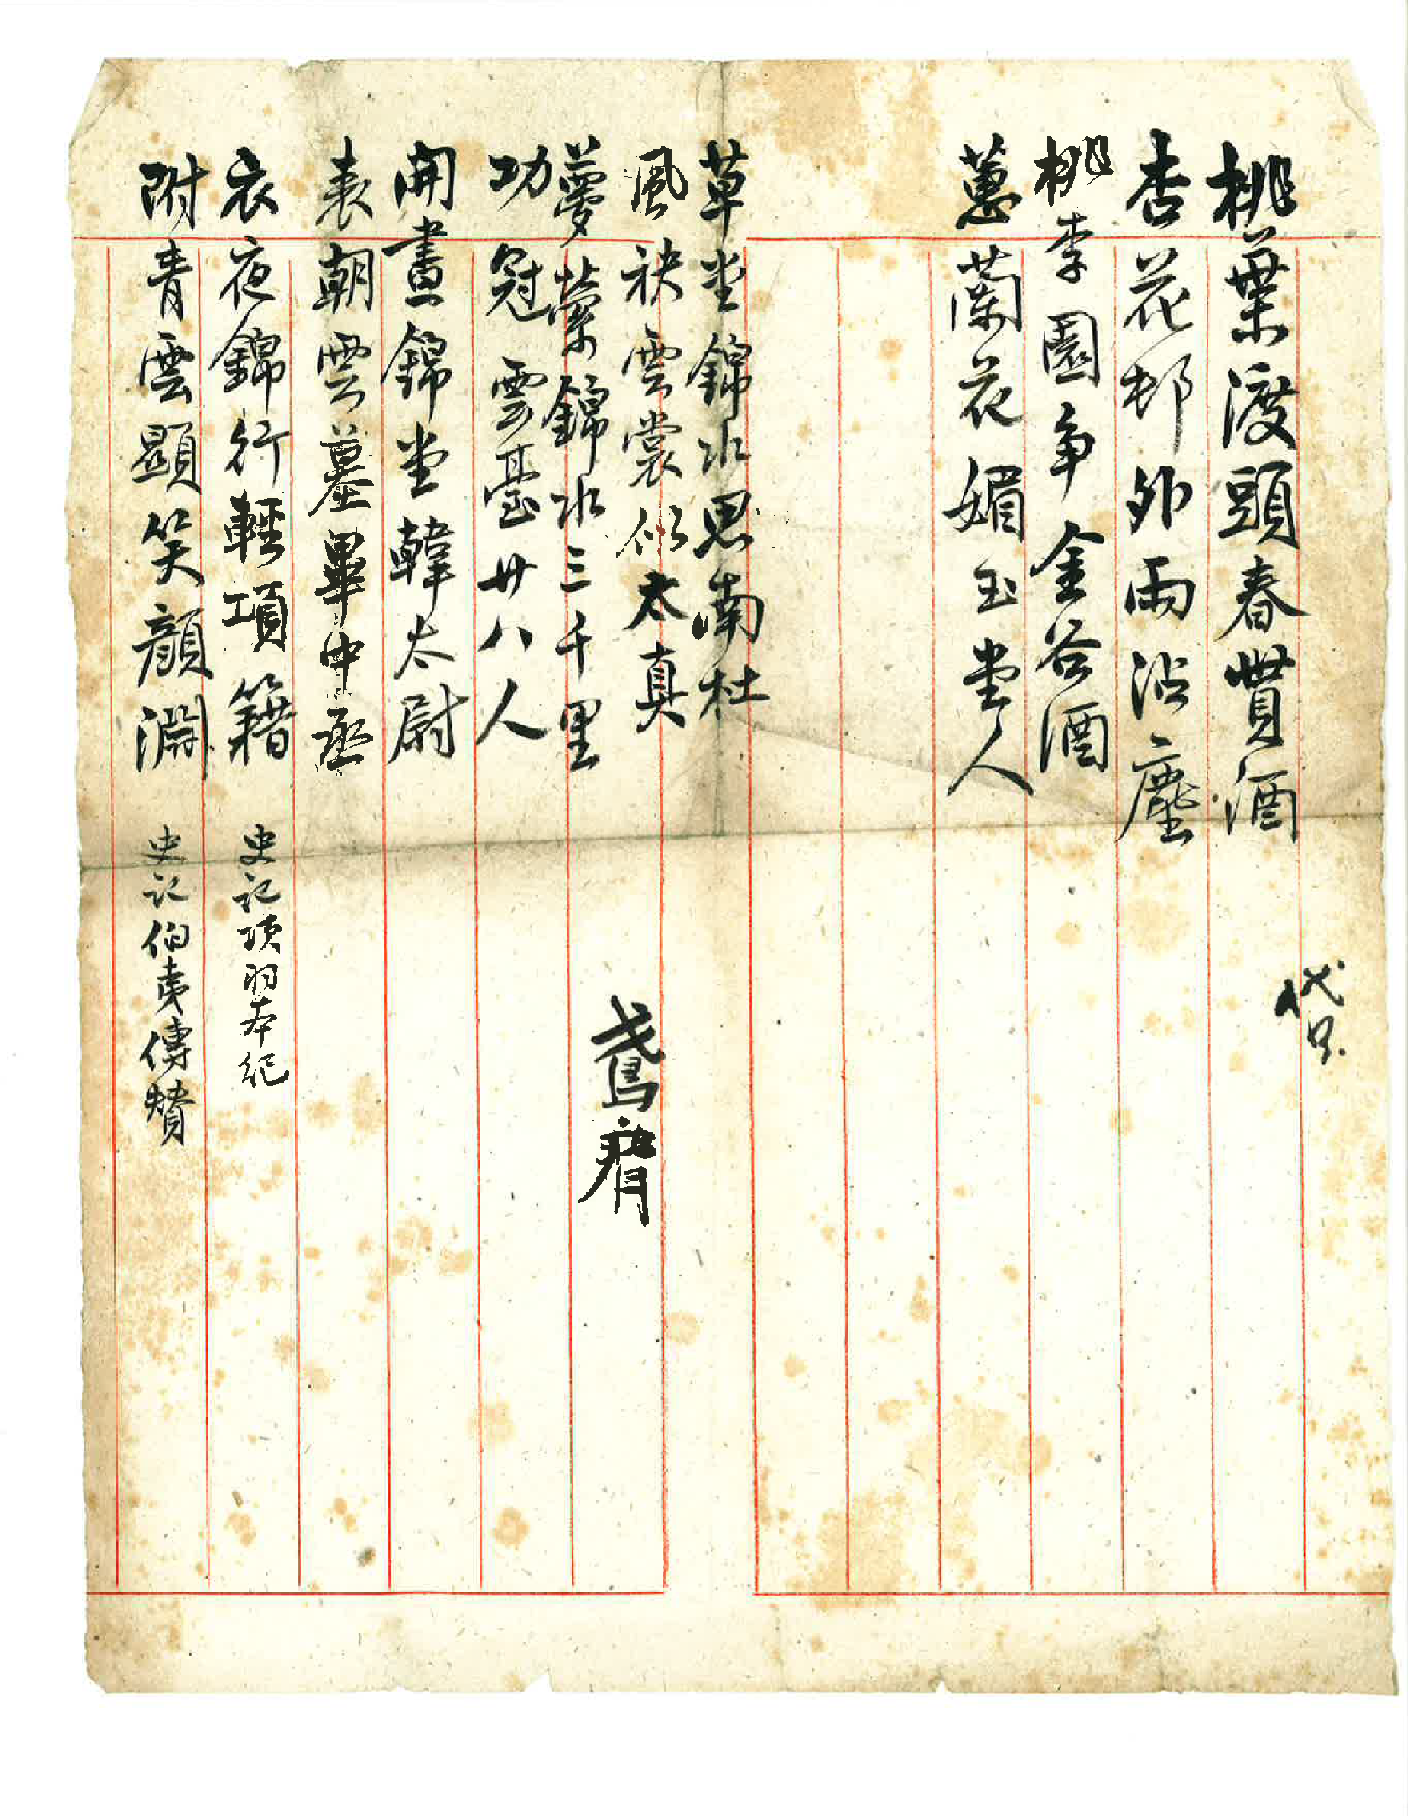 桃葉渡頭春貰酒
杏花邨外雨沾塵
代
桃李園争金谷酒
蕙蘭花媚玉堂人
草堂錦水思南杜
風袂雲裳似太真
夢縈錦水三千里
功冠雲臺廿八人
鳶肩
開晝錦堂韓太尉
表朝雲墓畢中丞
衣夜錦行輕項籍 史記項羽本紀
附青雲顯笑顏淵 史記伯夷傳贊